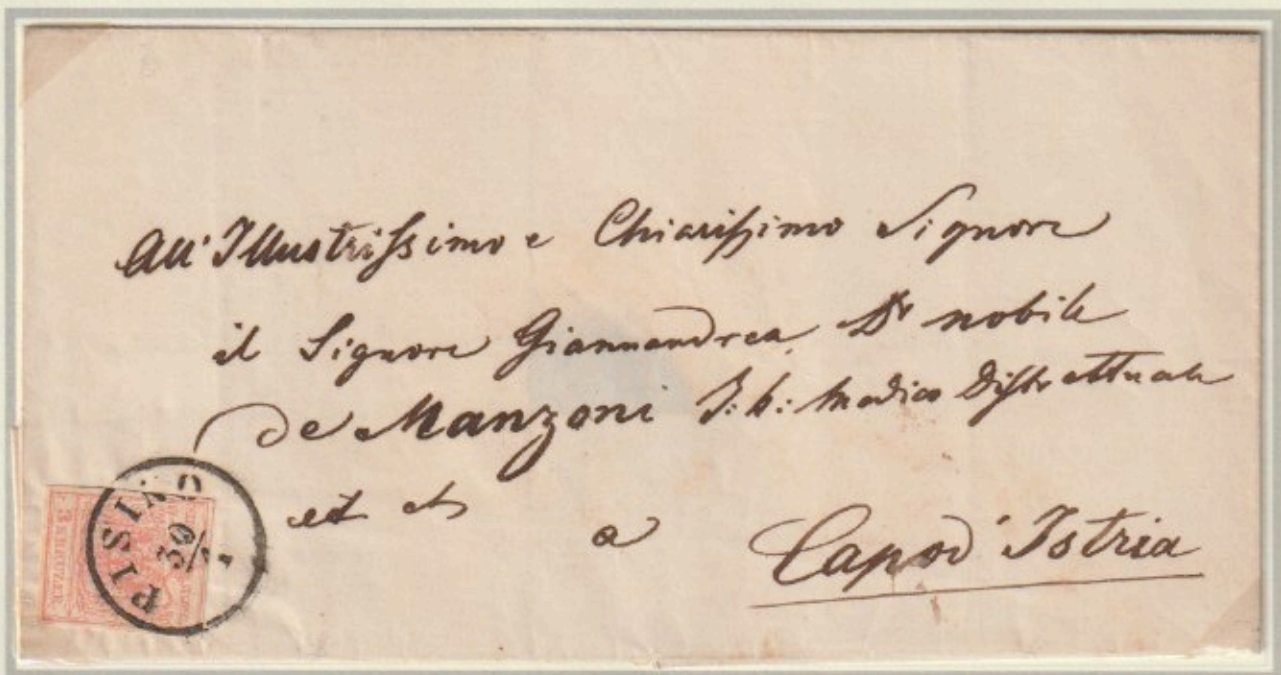 All'Illustrissimo e Chiarissimo Signore
il Signore Giannandrea Dr nobile
de Manzoni I: R: Medico Distrettuale
et
a
Capod'Istria
PISINO
30
3 KREUZER